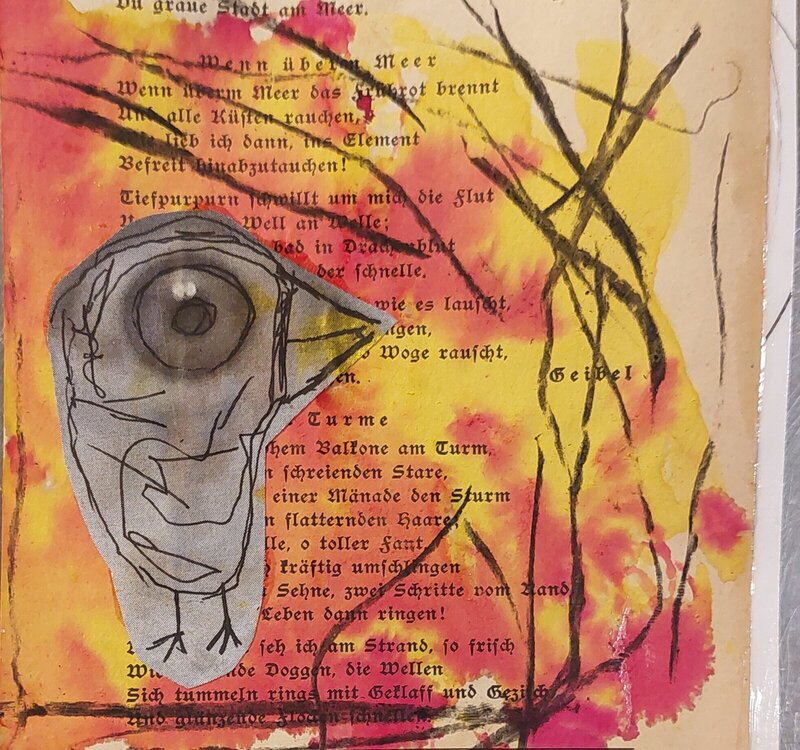 Du graue Stadt am Meer.
Wenn überm Meer
Wenn überm Meer das Frührot brennt
Und alle Küsten rauchen,
lieb ich dann, ins Element
Befreit hinabzutauchen!
Tiefpurpurn schwillt um mich die Flut
Well an Welle;
bad in Drachenblut
der schnelle.
wie es lauscht,
gen,
Woge rauscht,
en.
Geibel
Turme
hem Balkone am Turm,
schreienden Stare,
einer Mänade den Sturm
flatternden Haare;
lle, o toller Fant,
kräftig umschlingen
Sehne, zwei Schritte vom Rand
Leben dann ringen!
seh ich am Strand, so frisch
Wie de Doggen, die Wellen
Sich tummeln rings mit Gekläff und Gezisch
Und glänzende Flocken schnellen.